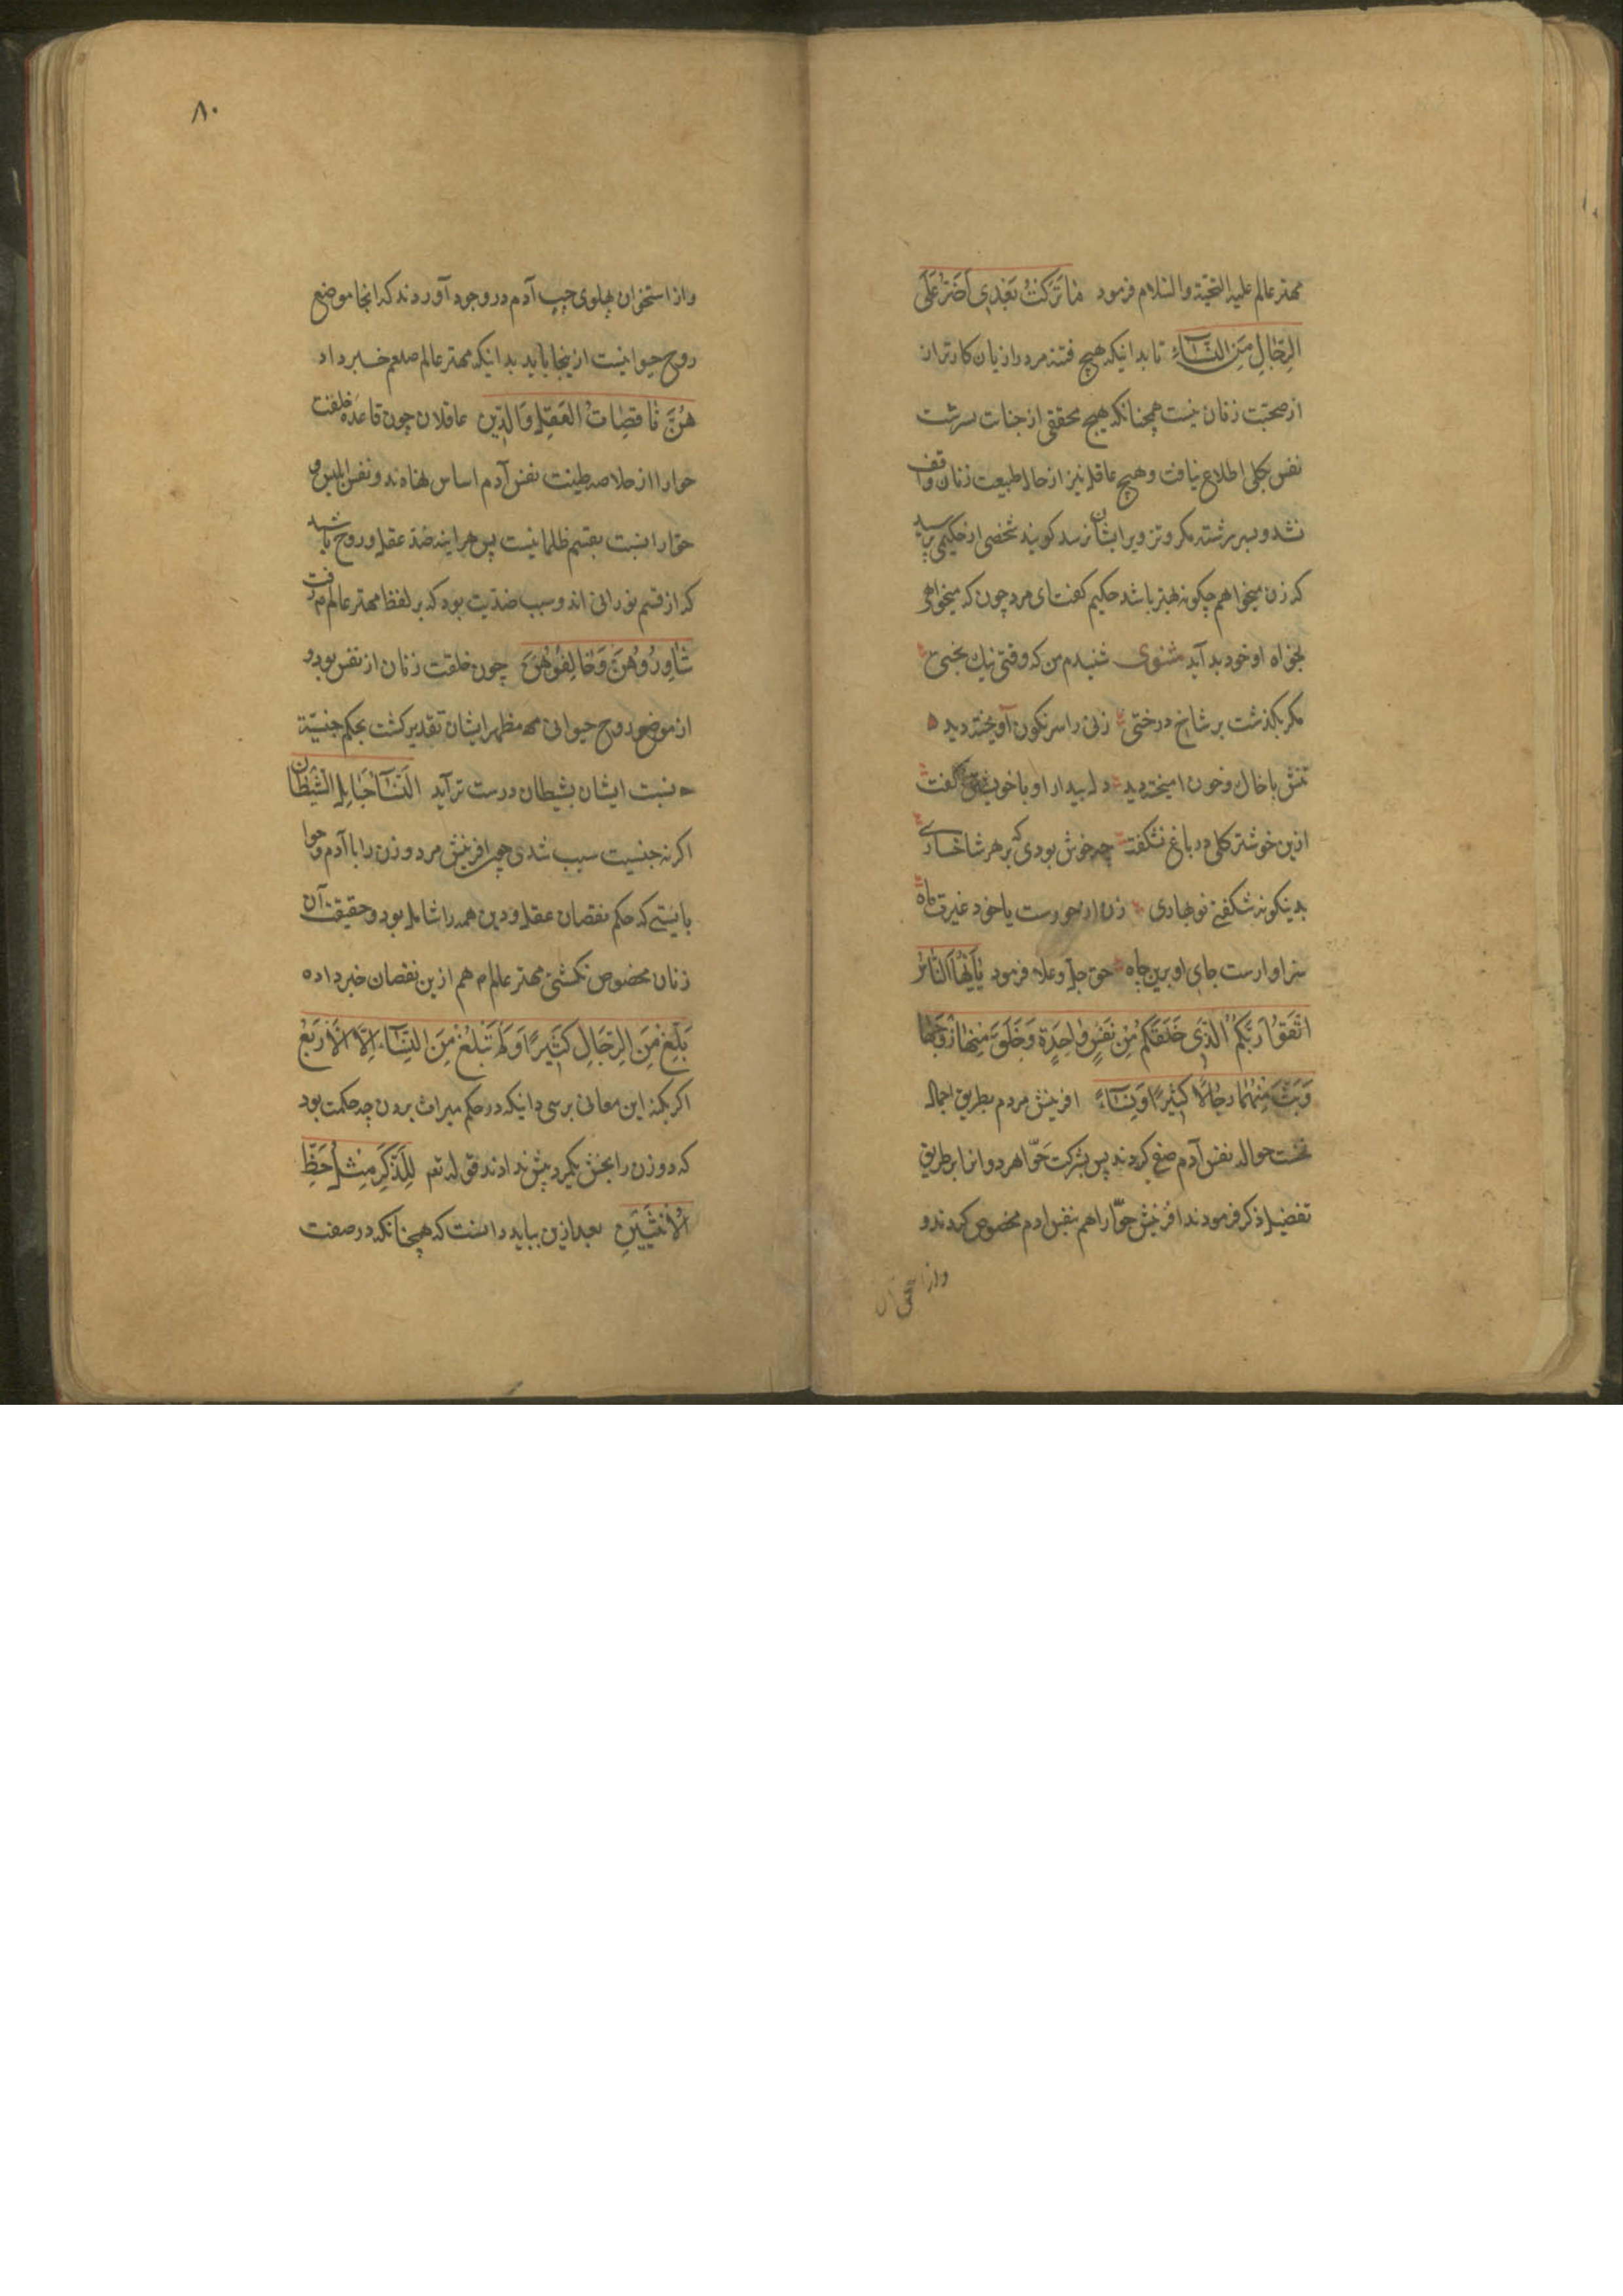 مهتر عالم علیه التحیة والسلام فرمود مَا تَرَكْتُ بَعْدِی اَضَرَّ عَلَی
الرِّجَالِ مِنَ النِّسَآءِ تا بدانیکه هیچ فتنه مرد را زیان کارتر از
از صحبت زنان نیست همچنانکه هیچ محققی از جنات سرشت
نفس بکلی اطلاع نیافت و هیچ عاقل نیز از حال طبیعت زنان واقف
نشد و بسر رشته مکر و تزویر ایشان نرسد کویند شخصی از حکیمی پرسید
که زن میخواهم چکونه بهتر باشد حکیم کفت ای مرد چون که میخواهی
بخواه او خود بد آید مثنوی شنیدم من که وقتی نیك بختی
مکر بکذشت بر شاخ درختی زنی را سرنکون آویخته دید
تنش با خاك و خون امیخته دید دل بیدار او با خویشتن کفت
ازین خوشتر کلی در باغ نشکفت چه خوش بودی که بر هر شاخساری
بدینکونه شکفتی نوبهاری زن ار حورست یا خود غیرت ماه
سزاوارست جای او برین جاه حق جل وعلا فرمود یَا اَیُّهَا النَّاسُ
اتَّقُوا رَبَّکُمُ الَّذِی خَلَقَکُمْ مِنْ نَفْسٍ وَاحِدَةٍ وَخَلَقَ مِنْهَا زَوْجَهَا
وَبَثَّ مِنْهُمَا رِجَالًا کَثِیرًا وَنِسَآءً افرینش مردم بطریق اجمال
نخست حواله بنفس آدم صفی کردند پس بشرکت حوّا هر دو انرا بر طریق
تفضیل ذکر فرمودند افرینش حوّا را هم بنفس ادم مخصوص کردند و
واز
۸۰
واز استخوان پهلوی چپ آدم در وجود آوردند که انجا موضع
روح حیوانیست ازینجا باید بدانیکه مهتر عالم صلعم خبر داد
هُنَّ نَاقِصَاتُ الْعَقْلِ وَالدِّینِ عاقلان چون قاعده خلقت
حوا را از خلاصه طینت نفس آدم اساس نهاده‌ند و نفس ابلیس و
حوّا را نسبت بقسم ظلمانیست پس هراینه ضد عقل و روح باشد
که از قسم نورانی اند و سبب ضدّیت بود که بر لفظ مهتر عالم م رفت
شَاوِرُوهُنَّ وَخَالِفُوهُنَّ چون خلقت زنان از نفس بود و
از موضع روح حیوانی محل مظهر ایشان تقدیر کشت بحکم جنسیّة
نسبت ایشان بشیطان درست تر آید اَلنِّسَآءُ حَبَایِلُ الشَّیْطَانِ
اکر نه جنسیت سبب شدی چون افرینش مرد و زن را با آدم و حوا
بایستی که حکم نقصان عقل و دین همه را شامل بود و حقیقت آن
زنان مخصوص نکشتی مهتر عالم م هم ازین نقصان خبر داده
بَلَغَ مِنَ الرِّجَالِ کَثِیرًا وَلَمْ تَبْلُغْ مِنَ النِّسَآءِ اِلَّا الْاَرْبَعُ
اکر بکنه این معانی برسی دانیکه در حکم میراث بردن چه حکمت بود
که دو زن را بخش یکمرد بیش ندادند قوله تع لِلذَّکَرِ مِثْلُ حَظِّ
الْاُنْثَیَیْنِ بعد ازین بباید دانست که همچنانکه در صفت